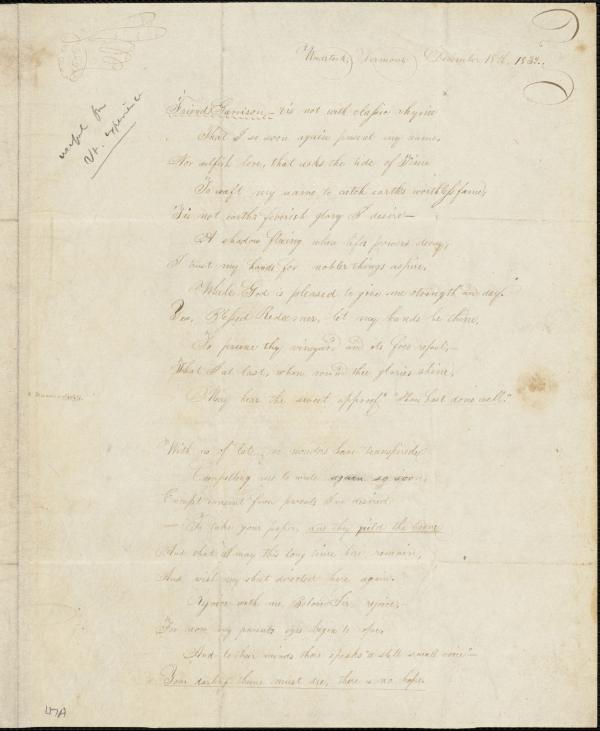 Woodstock, Vermont, December 18th, 1832.
useful for
Vt. experience
Friend Garrison,— tis not with classic rhyme
That I so soon again present my name,
Nor selfish love, that asks the tide of Time
To waft my name to catch earth's worthless fame;
Tis not earth's feverish glory I desire—
A shadow fleeing when life's powers decay;
I trust my hands for nobler things aspire,
While God is pleased to give me strength and day.
Yes, Blessed Redeemer, let my hands be thine,
To prune thy vineyard and its foes repel,—
That I at last, when round thee glories shine,
May hear the sweet approof "Thou hast done well."
With us of late, no wonders have transpired
Compelling me to write again so soon,
Except consent from parents I've desired
— To take your paper, and they yield the boon
And that it may this long time here remain,
And wish my sheet directed here again.
Rejoice with me, Beloved Sir rejoice,
For now my parents eyes begin to open
And to their minds there speaks "a still small voice"—
Your darling theme must die, there is no hope.
47A